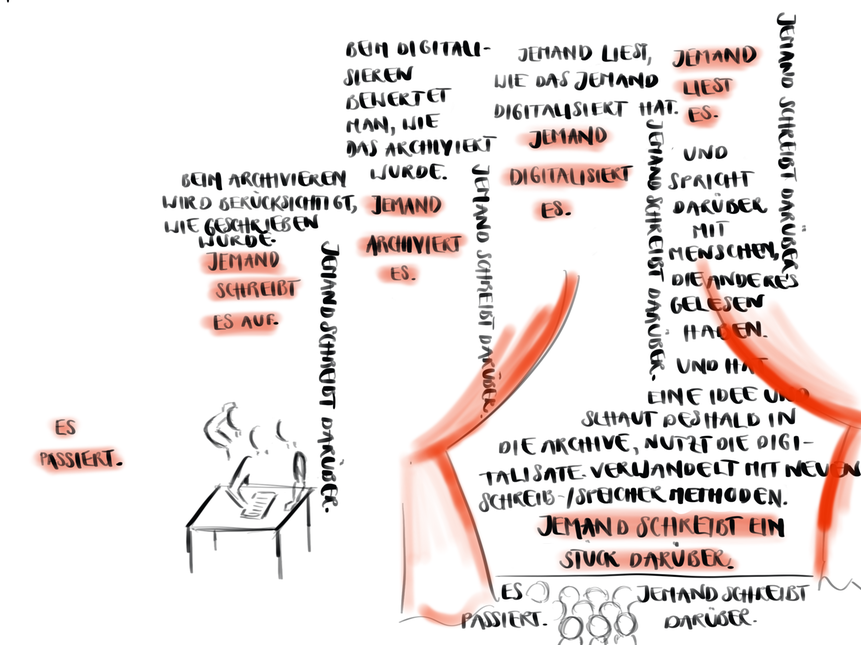 ES
PASSIERT.
BEIM ARCHIVIEREN
WIRD BERÜCKSICHTIGT,
WIE GESCHRIEBEN
WURDE.
JEMAND
SCHREIBT
ES AUF.
JEMAND SCHREIBT DARÜBER.
BEIM DIGITALI-
SIEREN
BEWERTET
MAN, WIE
DAS ARCHIVIERT
WURDE.
JEMAND
ARCHIVIERT
ES.
JEMAND SCHREIBT DARÜBER.
JEMAND LIEST,
WIE DAS JEMAND
DIGITALISIERT HAT.
JEMAND
DIGITALISIERT
ES.
JEMAND SCHREIBT DARÜBER.
JEMAND
LIEST
ES.
UND
SPRICHT
DARÜBER
MIT
MENSCHEN,
DIE ANDERES
GELESEN
HABEN.
JEMAND SCHREIBT DARÜBER.
UND HAT
EINE IDEE UND
SCHAUT DESHALB IN
DIE ARCHIVE, NUTZT DIE DIGI-
TALISATE. VERWANDELT MIT NEUEN
SCHREIB-/SPEICHERMETHODEN.
JEMAND SCHREIBT EIN
STÜCK DARÜBER.
ES
PASSIERT.
JEMAND SCHREIBT
DARÜBER.